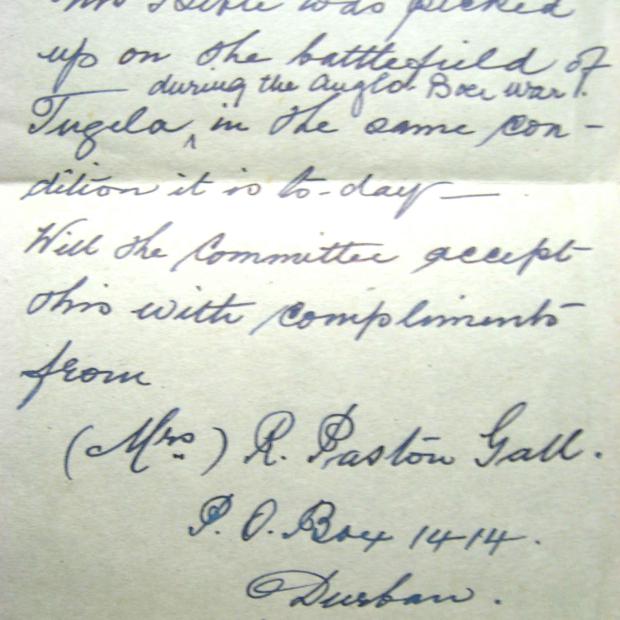 This Bible was picked
up on the battlefield of
during the Anglo Boer war.
Tugela ^ in the same con-
dition it is to-day —.
Will the Committee accept
this with compliments
from
(Mrs) R. Paston Gall.
P. O. Box 1414.
Durban.